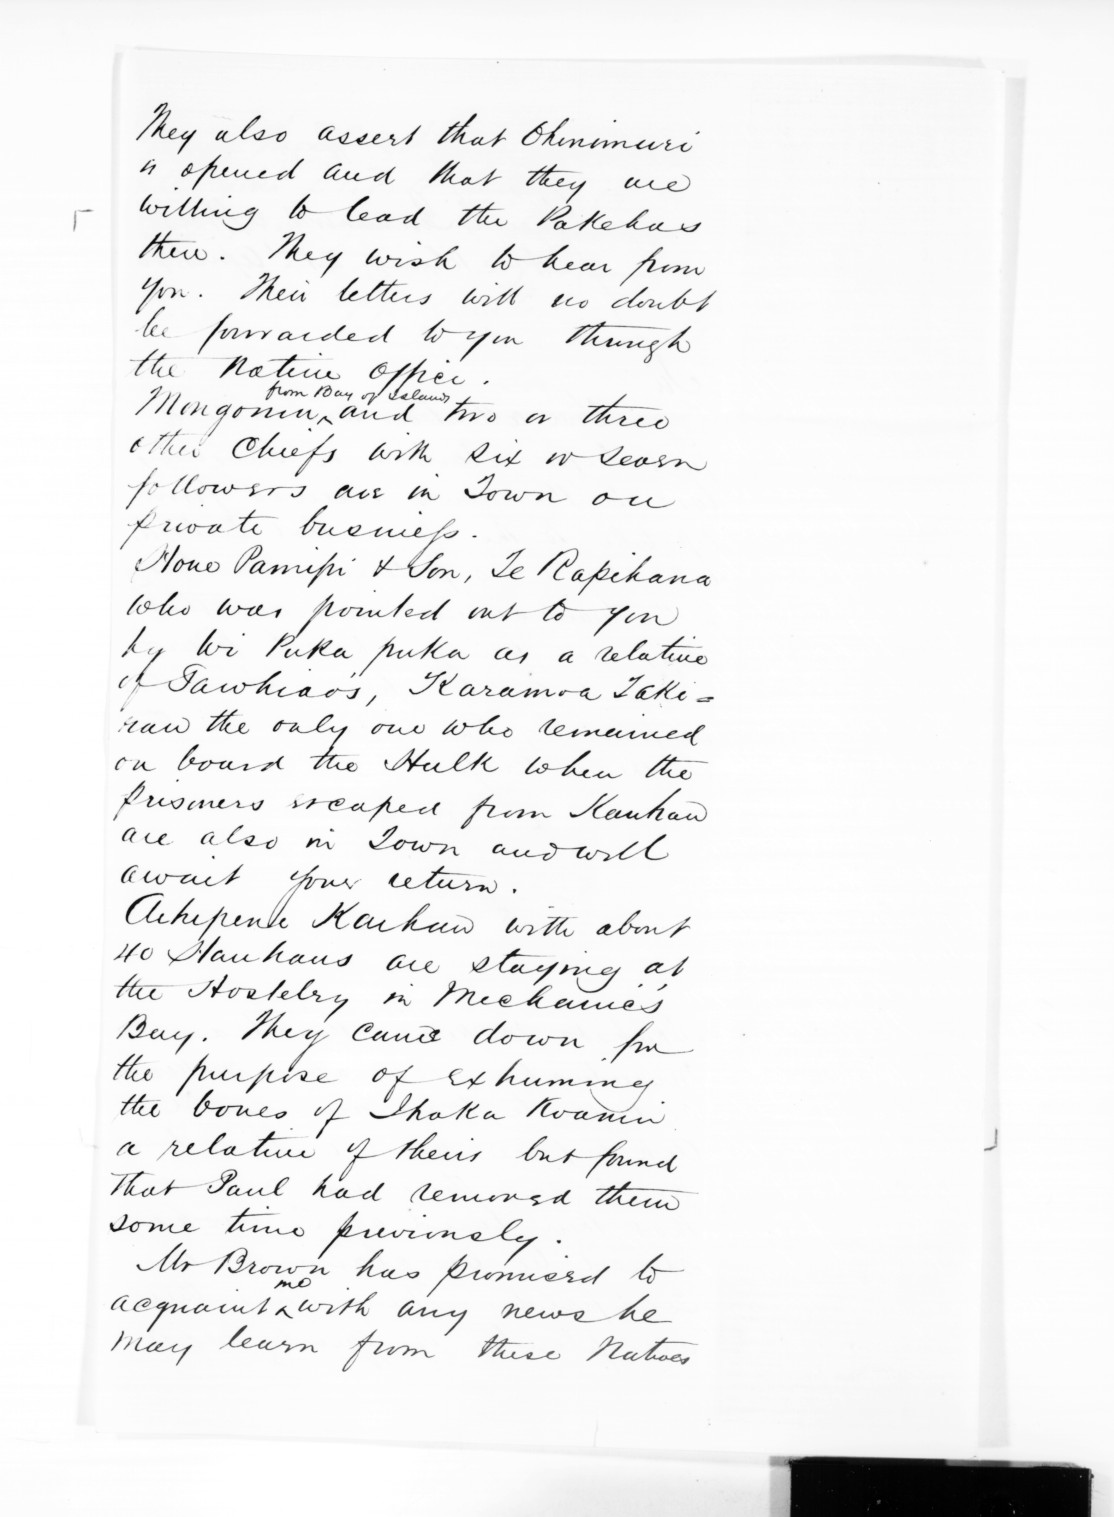 They also assert that Ohinimuri
is opened and that they are
willing to lead the Pakehas
there. They wish to hear from
you. Their letters will no doubt
be forwarded to you through
the Native Office.
Mongonui, from Bay of Islands and two or three
other Chiefs with six or seven
followers are in Town on
private business.
Hone Pamipi & Son, Te Rapihana
who was pointed out to you
by Wi Puka puka as a relative
of Tawhiao's, Karamoa Taki=
rau the only one who remained
on board the Hulk when the
prisoners escaped from Kauhau
are also in Town and will
await your return.
Aihipene Kaihau with about
40 Hauhaus are staying at
the Hostelry in Mechanic's
Bay. They came down for
the purpose of exhuming
the bones of Ihaka
a relative of theirs but found
that Paul had removed them
some time previously.
Mr Brown has promised to
acquaint me with any news he
may learn from these Natives